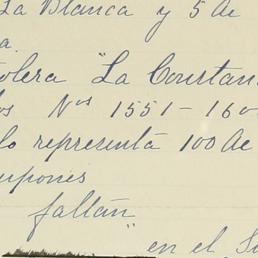 La Blanca y 5 Ac
a.
olera "La Constan
os Nos 1551-160
lo representa 100 Ac
upones
faltan"
en el Su